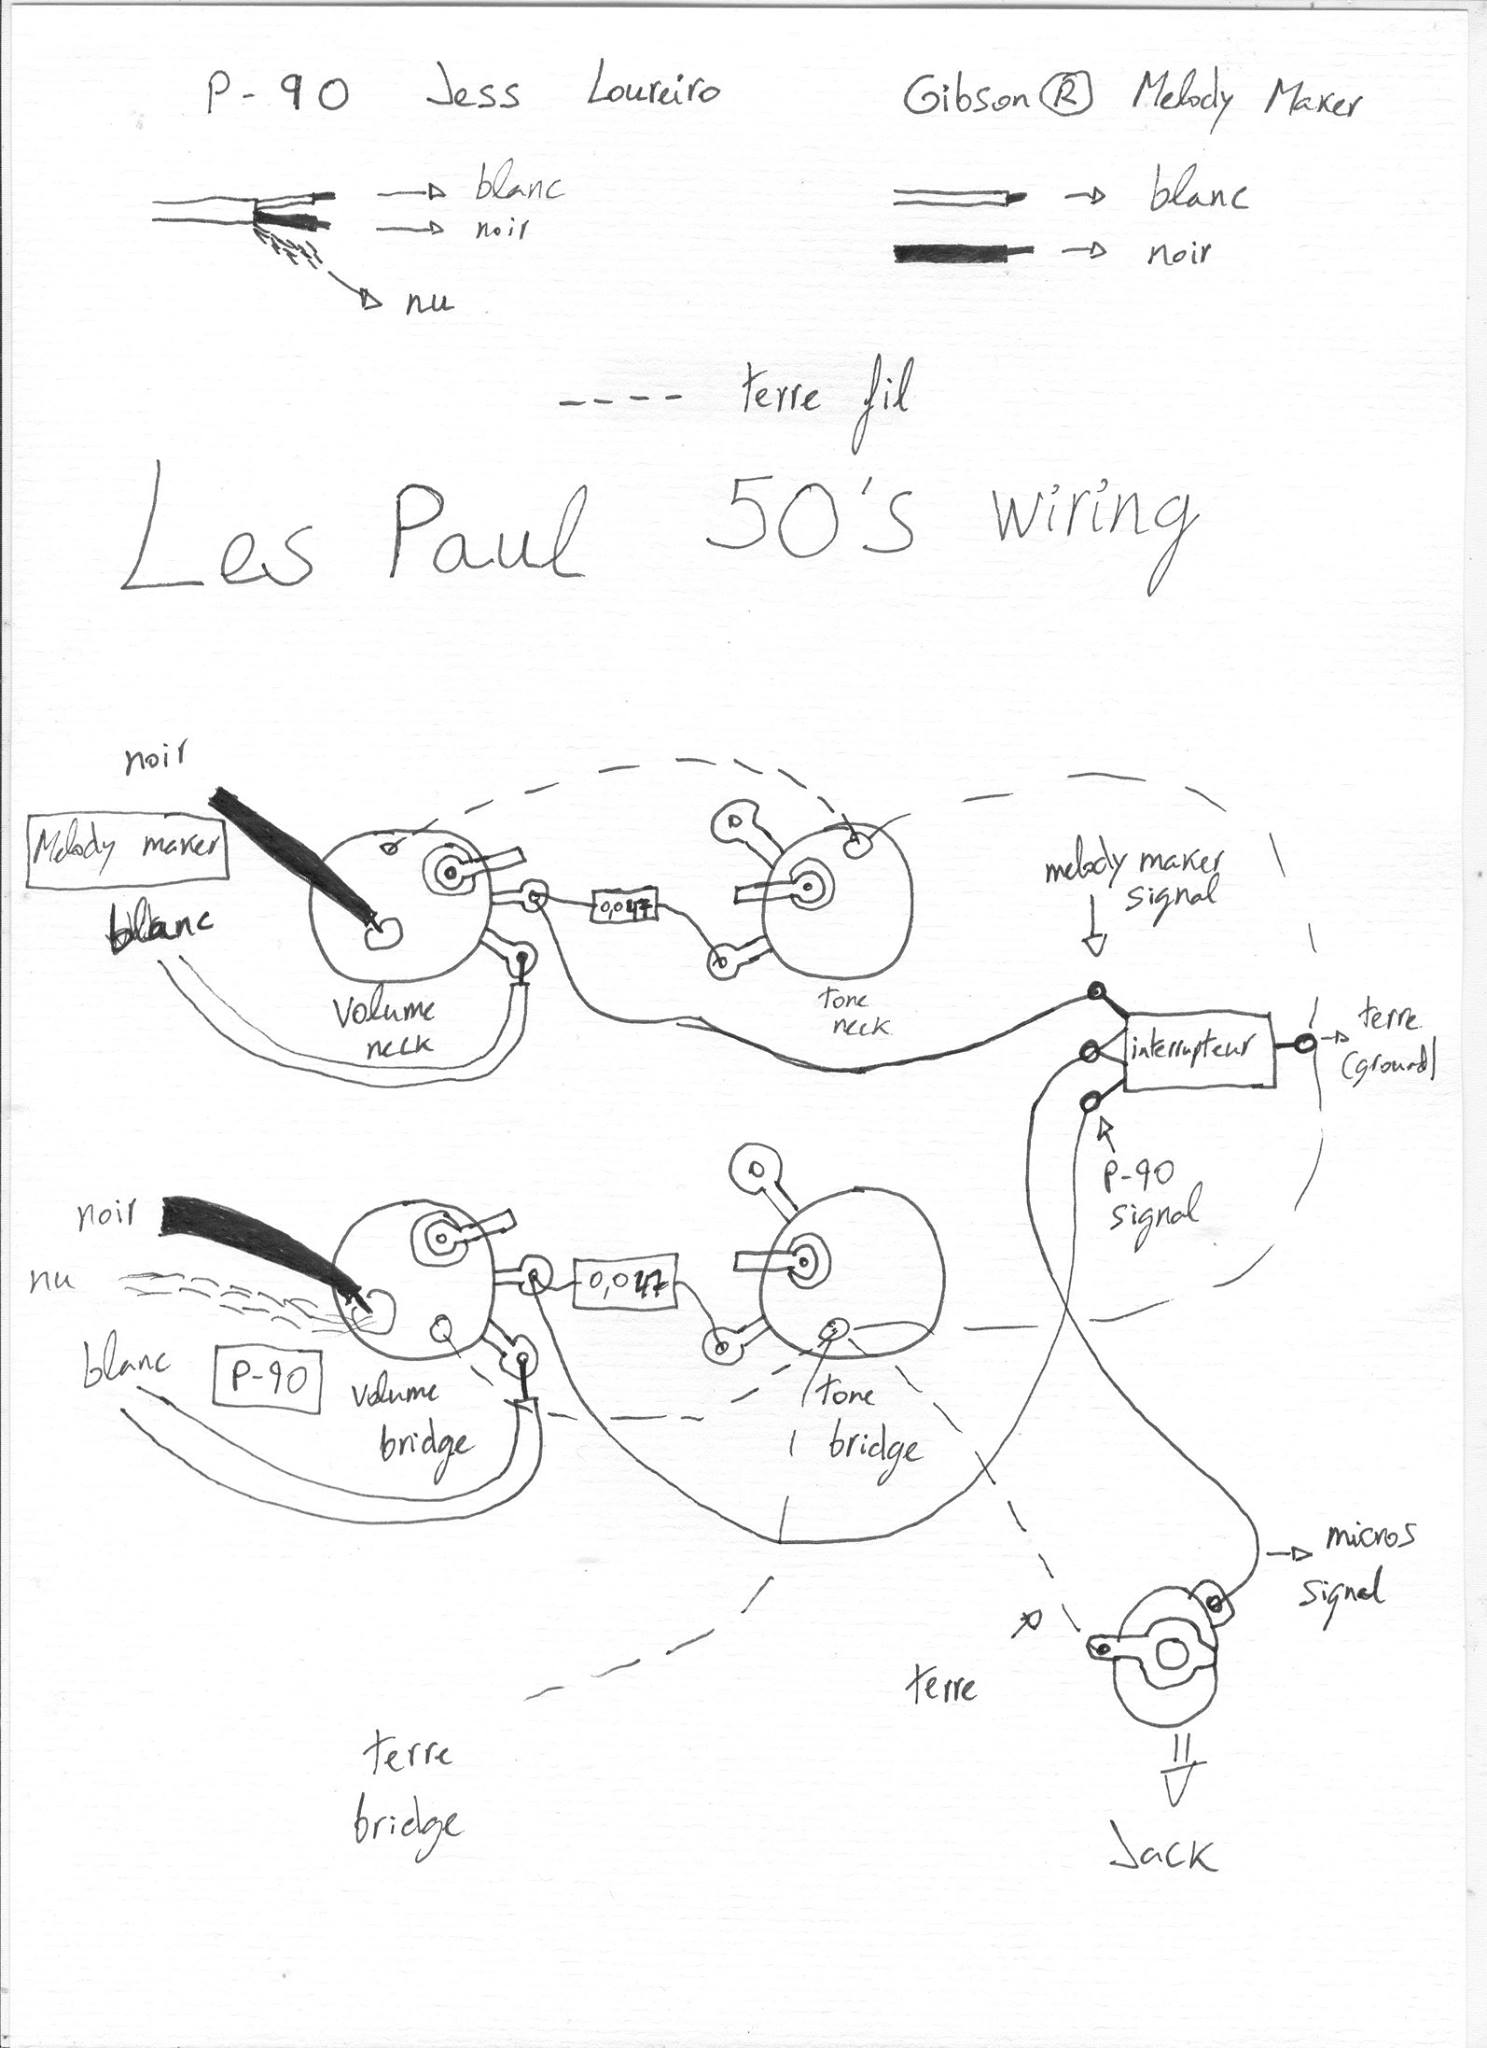 P-90 Jess Loureiro
Gibson ® Melody Maker
blanc
noir
nu
blanc
noir
terre fil
Les Paul 50's wiring
noir
Melody maker
blanc
Volume
neck
0,047
tone
neck
melody maker
signal
interrupteur
terre
(ground)
P-90
signal
noir
nu
blanc
P-90
volume
bridge
0,047
tone
bridge
micros
signal
terre
terre
bridge
Jack